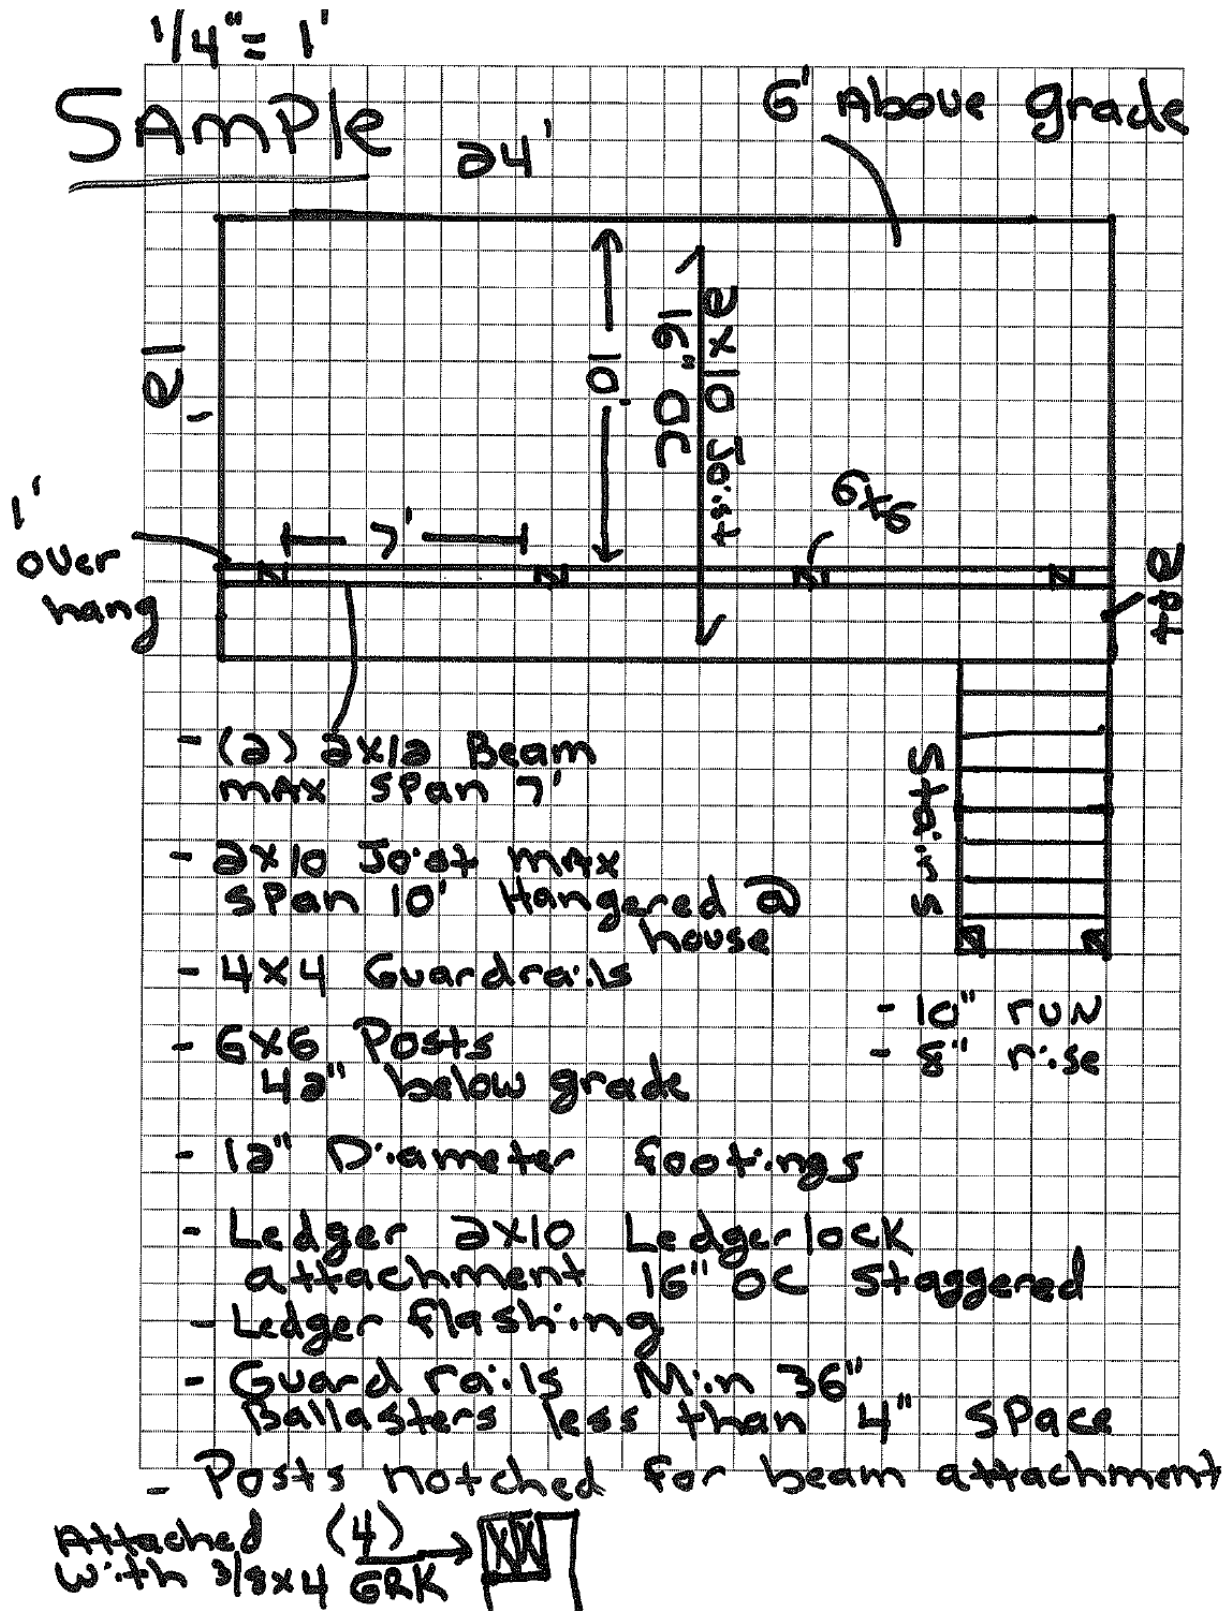 1/4" = 1'
SAmple
24'
6' Above grade
12'
10'
16" OC
2x10 Joist
6x6
1'
over
hang
7'
2ft
- (2) 2x12 Beam
mAx span 7'
- 2x10 Joist mAx
span 10' Hangered @
house
Stairs
- 4x4 Guardrails
- 10" ruN
- 8" rise
- 6x6 Posts
42" below grade
- 12" Diameter footings
- Ledger 2x10 Ledgerlock
attachment 16" OC staggered
- Ledger flashing
- Guard rails Min 36"
Ballasters less than 4" space
- Posts notched for beam attachment
Attached (4)
with 3/8x4 GRK